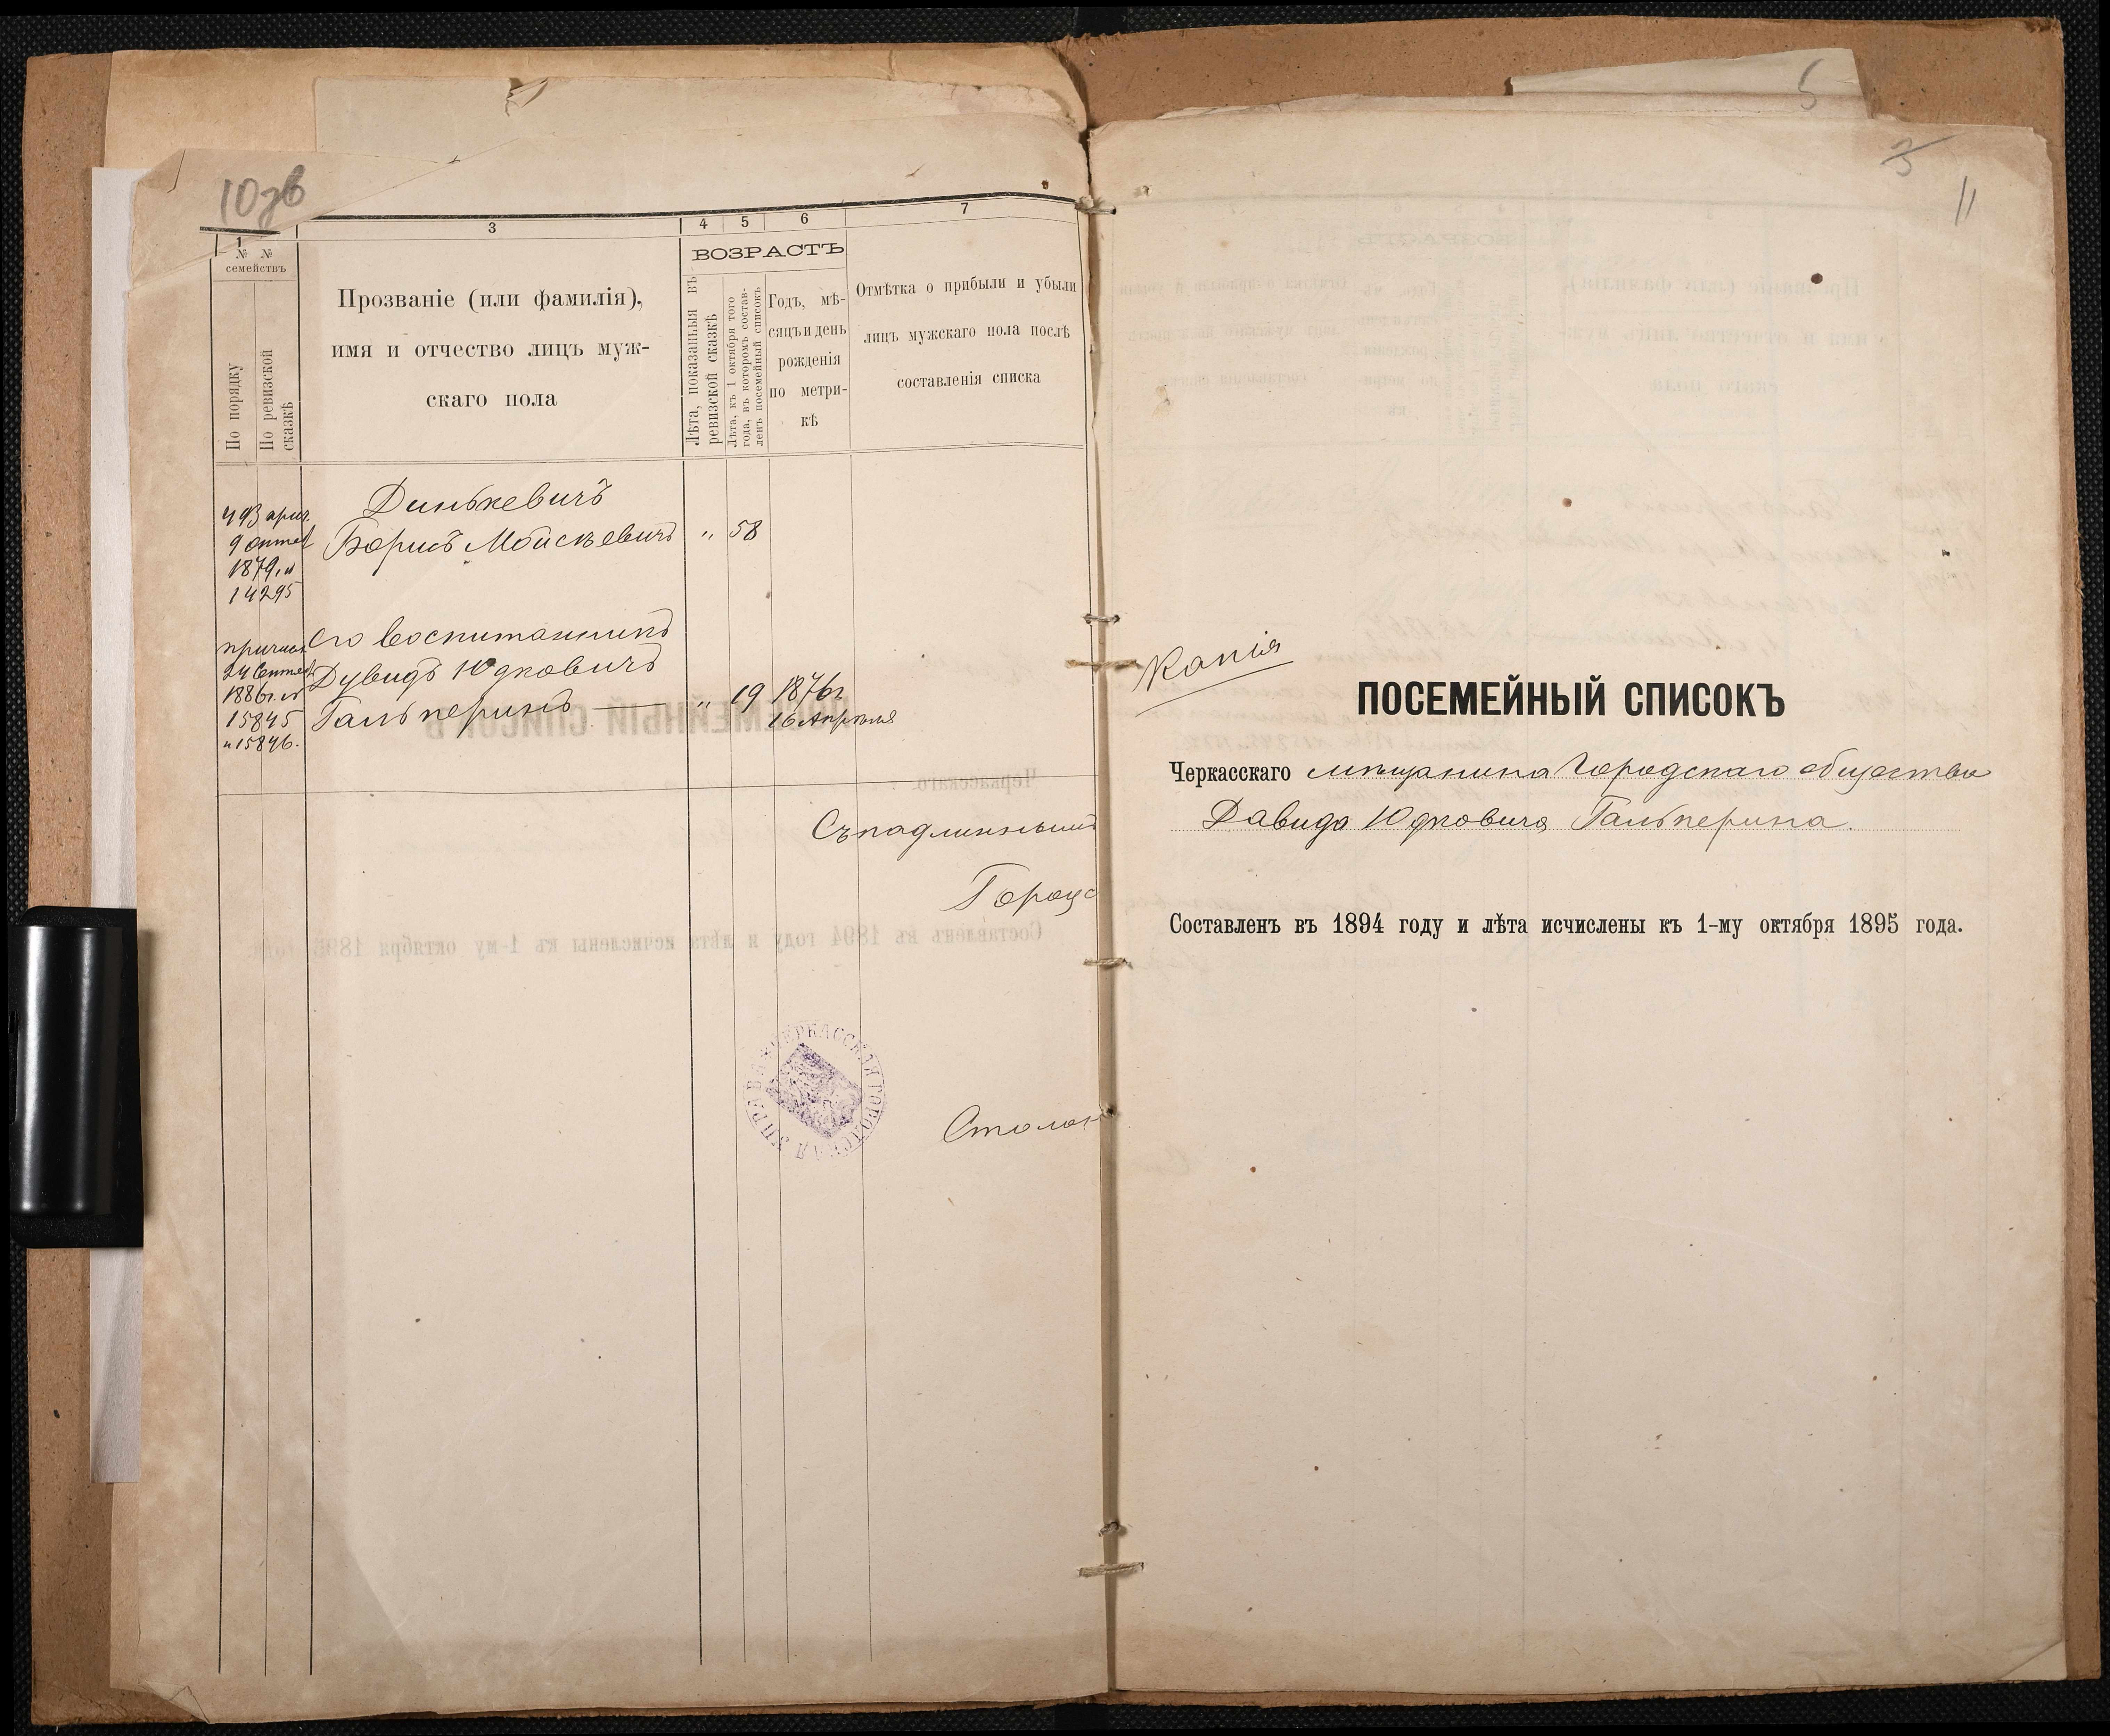 10зв
1
3
4
5
6
7
№ №
семействъ
По порядку
По ревизской
сказкѣ
Прозваніе (или фамилія),
имя и отчество лицъ муж-
скаго пола
ВОЗРАСТЪ
Лѣта, показаныя въ
ревизской сказкѣ
Лѣта, къ 1 октября того
года, въ которомъ состав-
ленъ посемейный списокъ
Годъ, мѣ-
сяцъ и день
рожденія
по метри-
кѣ
Отмѣтка о прибыли и убыли
лицъ мужскаго пола послѣ
составленія списка
493
9
1879. №
14295
Динькевичъ
Борисъ Мойсѣевичъ „ 58
24 Сентяб
1886 г. №
15845
и 15846.
Его воспитанникъ
Дувидъ Юдковичъ
Гальперинъ — „ 19 1876 г.
16 Апрѣля
Съ подлиннымъ
Город
Столон
ЧЕРКАССКАЯ ГОРОДСКАЯ УПРАВА
5
3
11
Копія
ПОСЕМЕЙНЫЙ СПИСОКЪ
Черкасскаго мѣщанина Городскаго общества
Давида Юдковича Гальперина.
Составленъ въ 1894 году и лѣта исчислены къ 1-му октября 1895 года.